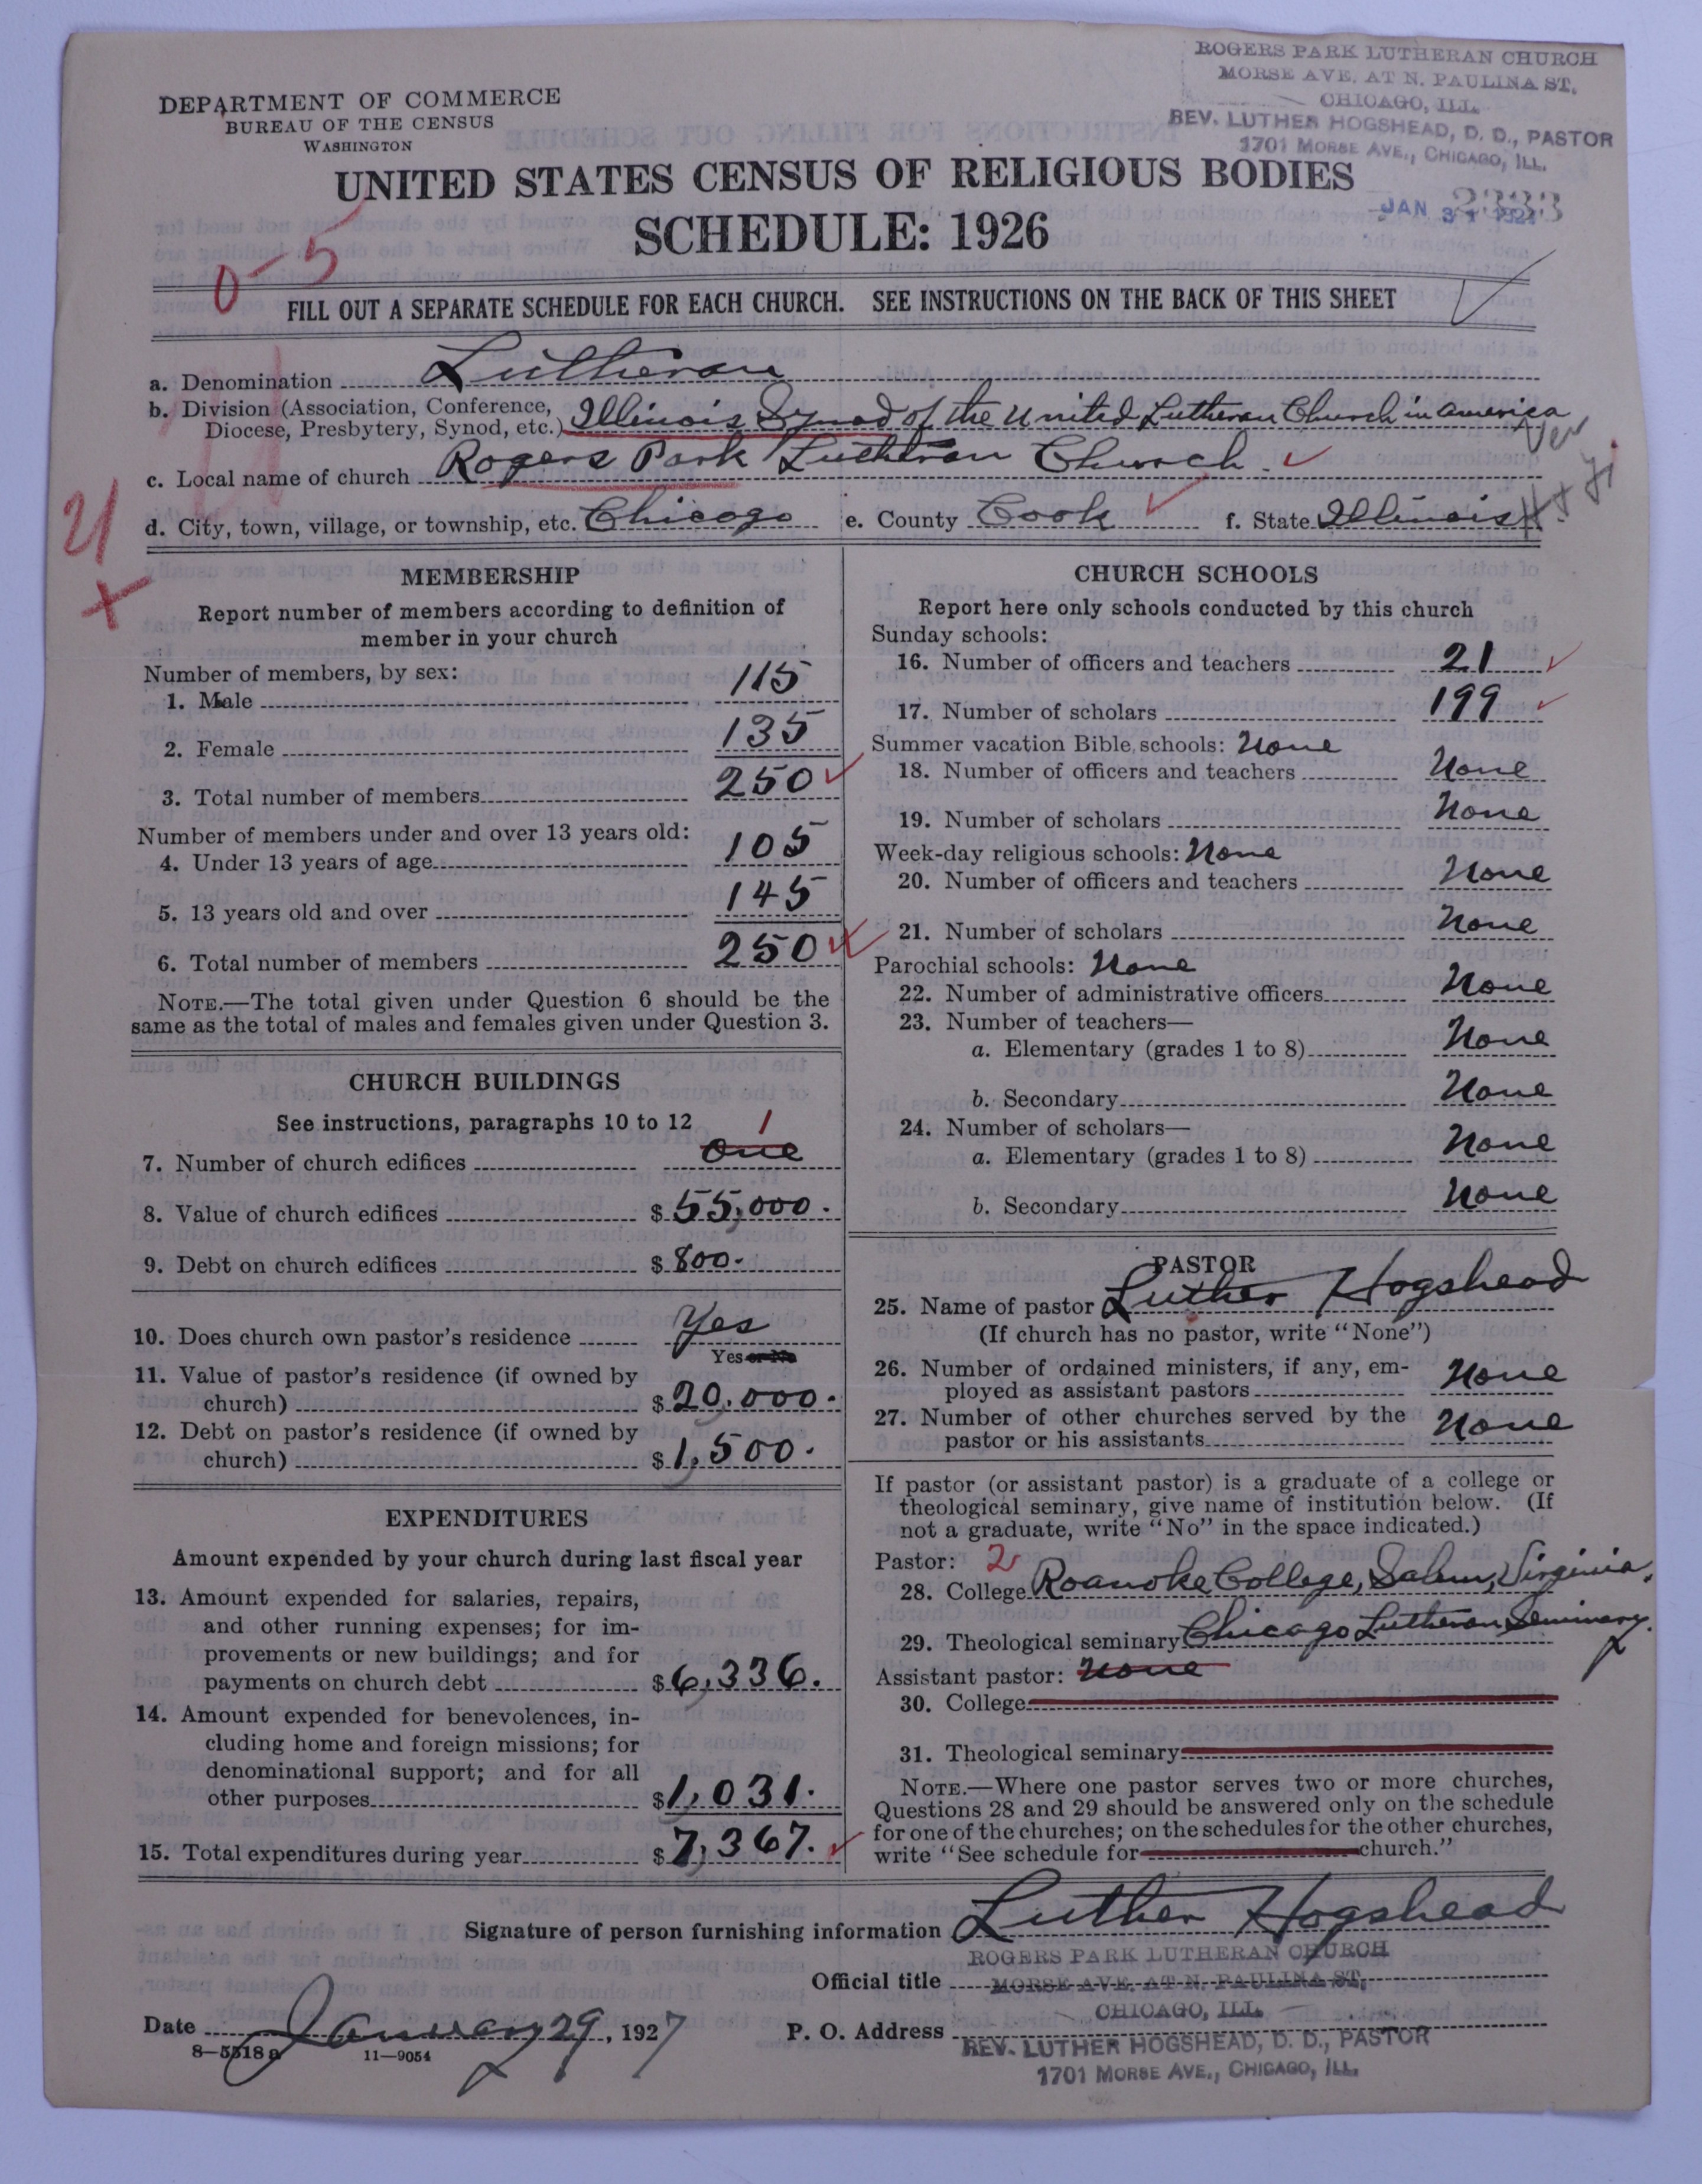 ROGERS PARK LUTHERAN CHURCH
MORSE AVE. AT N. PAULINA ST.
CHICAGO, ILL.
REV. LUTHER HOGSHEAD, D. D., PASTOR
1701 MORSE AVE., CHICAGO, ILL.
DEPARTMENT OF COMMERCE
BUREAU OF THE CENSUS
WASHINGTON
UNITED STATES CENSUS OF RELIGIOUS BODIES
JAN 31
SCHEDULE: 1926
0-5
FILL OUT A SEPARATE SCHEDULE FOR EACH CHURCH. SEE INSTRUCTIONS ON THE BACK OF THIS SHEET
a. Denomination Lutheran
b. Division (Association, Conference, Diocese, Presbytery, Synod, etc.) Illinois Synod of the United Lutheran Church in America
c. Local name of church Rogers Park Lutheran Church.
d. City, town, village, or township, etc. Chicago e. County Cook f. State Illinois
MEMBERSHIP
Report number of members according to definition of
member in your church
Number of members, by sex:
1. Male 115
2. Female 135
3. Total number of members 250
Number of members under and over 13 years old:
4. Under 13 years of age 105
5. 13 years old and over 145
6. Total number of members 250
NOTE.—The total given under Question 6 should be the
same as the total of males and females given under Question 3.
CHURCH BUILDINGS
See instructions, paragraphs 10 to 12
1
7. Number of church edifices One
8. Value of church edifices $55,000.
9. Debt on church edifices $800.
10. Does church own pastor's residence Yes
Yes or No
11. Value of pastor's residence (if owned by
church) $20,000.
12. Debt on pastor's residence (if owned by
church) $1,500.
EXPENDITURES
Amount expended by your church during last fiscal year
13. Amount expended for salaries, repairs,
and other running expenses; for im-
provements or new buildings; and for
payments on church debt $6,336.
14. Amount expended for benevolences, in-
cluding home and foreign missions; for
denominational support; and for all
other purposes $1,031.
15. Total expenditures during year $7,367.
CHURCH SCHOOLS
Report here only schools conducted by this church
Sunday schools:
16. Number of officers and teachers 21
17. Number of scholars 199
Summer vacation Bible schools: None
18. Number of officers and teachers None
19. Number of scholars None
Week-day religious schools: None
20. Number of officers and teachers None
21. Number of scholars None
Parochial schools: None
22. Number of administrative officers None
23. Number of teachers—
a. Elementary (grades 1 to 8) None
b. Secondary None
24. Number of scholars—
a. Elementary (grades 1 to 8) None
b. Secondary None
PASTOR
25. Name of pastor Luther Hogshead
(If church has no pastor, write "None")
26. Number of ordained ministers, if any, em-
ployed as assistant pastors None
27. Number of other churches served by the
pastor or his assistants None
If pastor (or assistant pastor) is a graduate of a college or
theological seminary, give name of institution below. (If
not a graduate, write "No" in the space indicated.)
Pastor: 2
28. College Roanoke College, Salem, Virginia.
29. Theological seminary Chicago Lutheran Seminary.
Assistant pastor: None
30. College
31. Theological seminary
NOTE.—Where one pastor serves two or more churches,
Questions 28 and 29 should be answered only on the schedule
for one of the churches; on the schedules for the other churches,
write "See schedule for church."
Signature of person furnishing information Luther Hogshead
ROGERS PARK LUTHERAN CHURCH
Official title MORSE AVE. AT N. PAULINA ST.
CHICAGO, ILL.
Date January 29, 1927 P. O. Address REV. LUTHER HOGSHEAD, D. D., PASTOR
8—5518 a 11—9054
1701 MORSE AVE., CHICAGO, ILL.